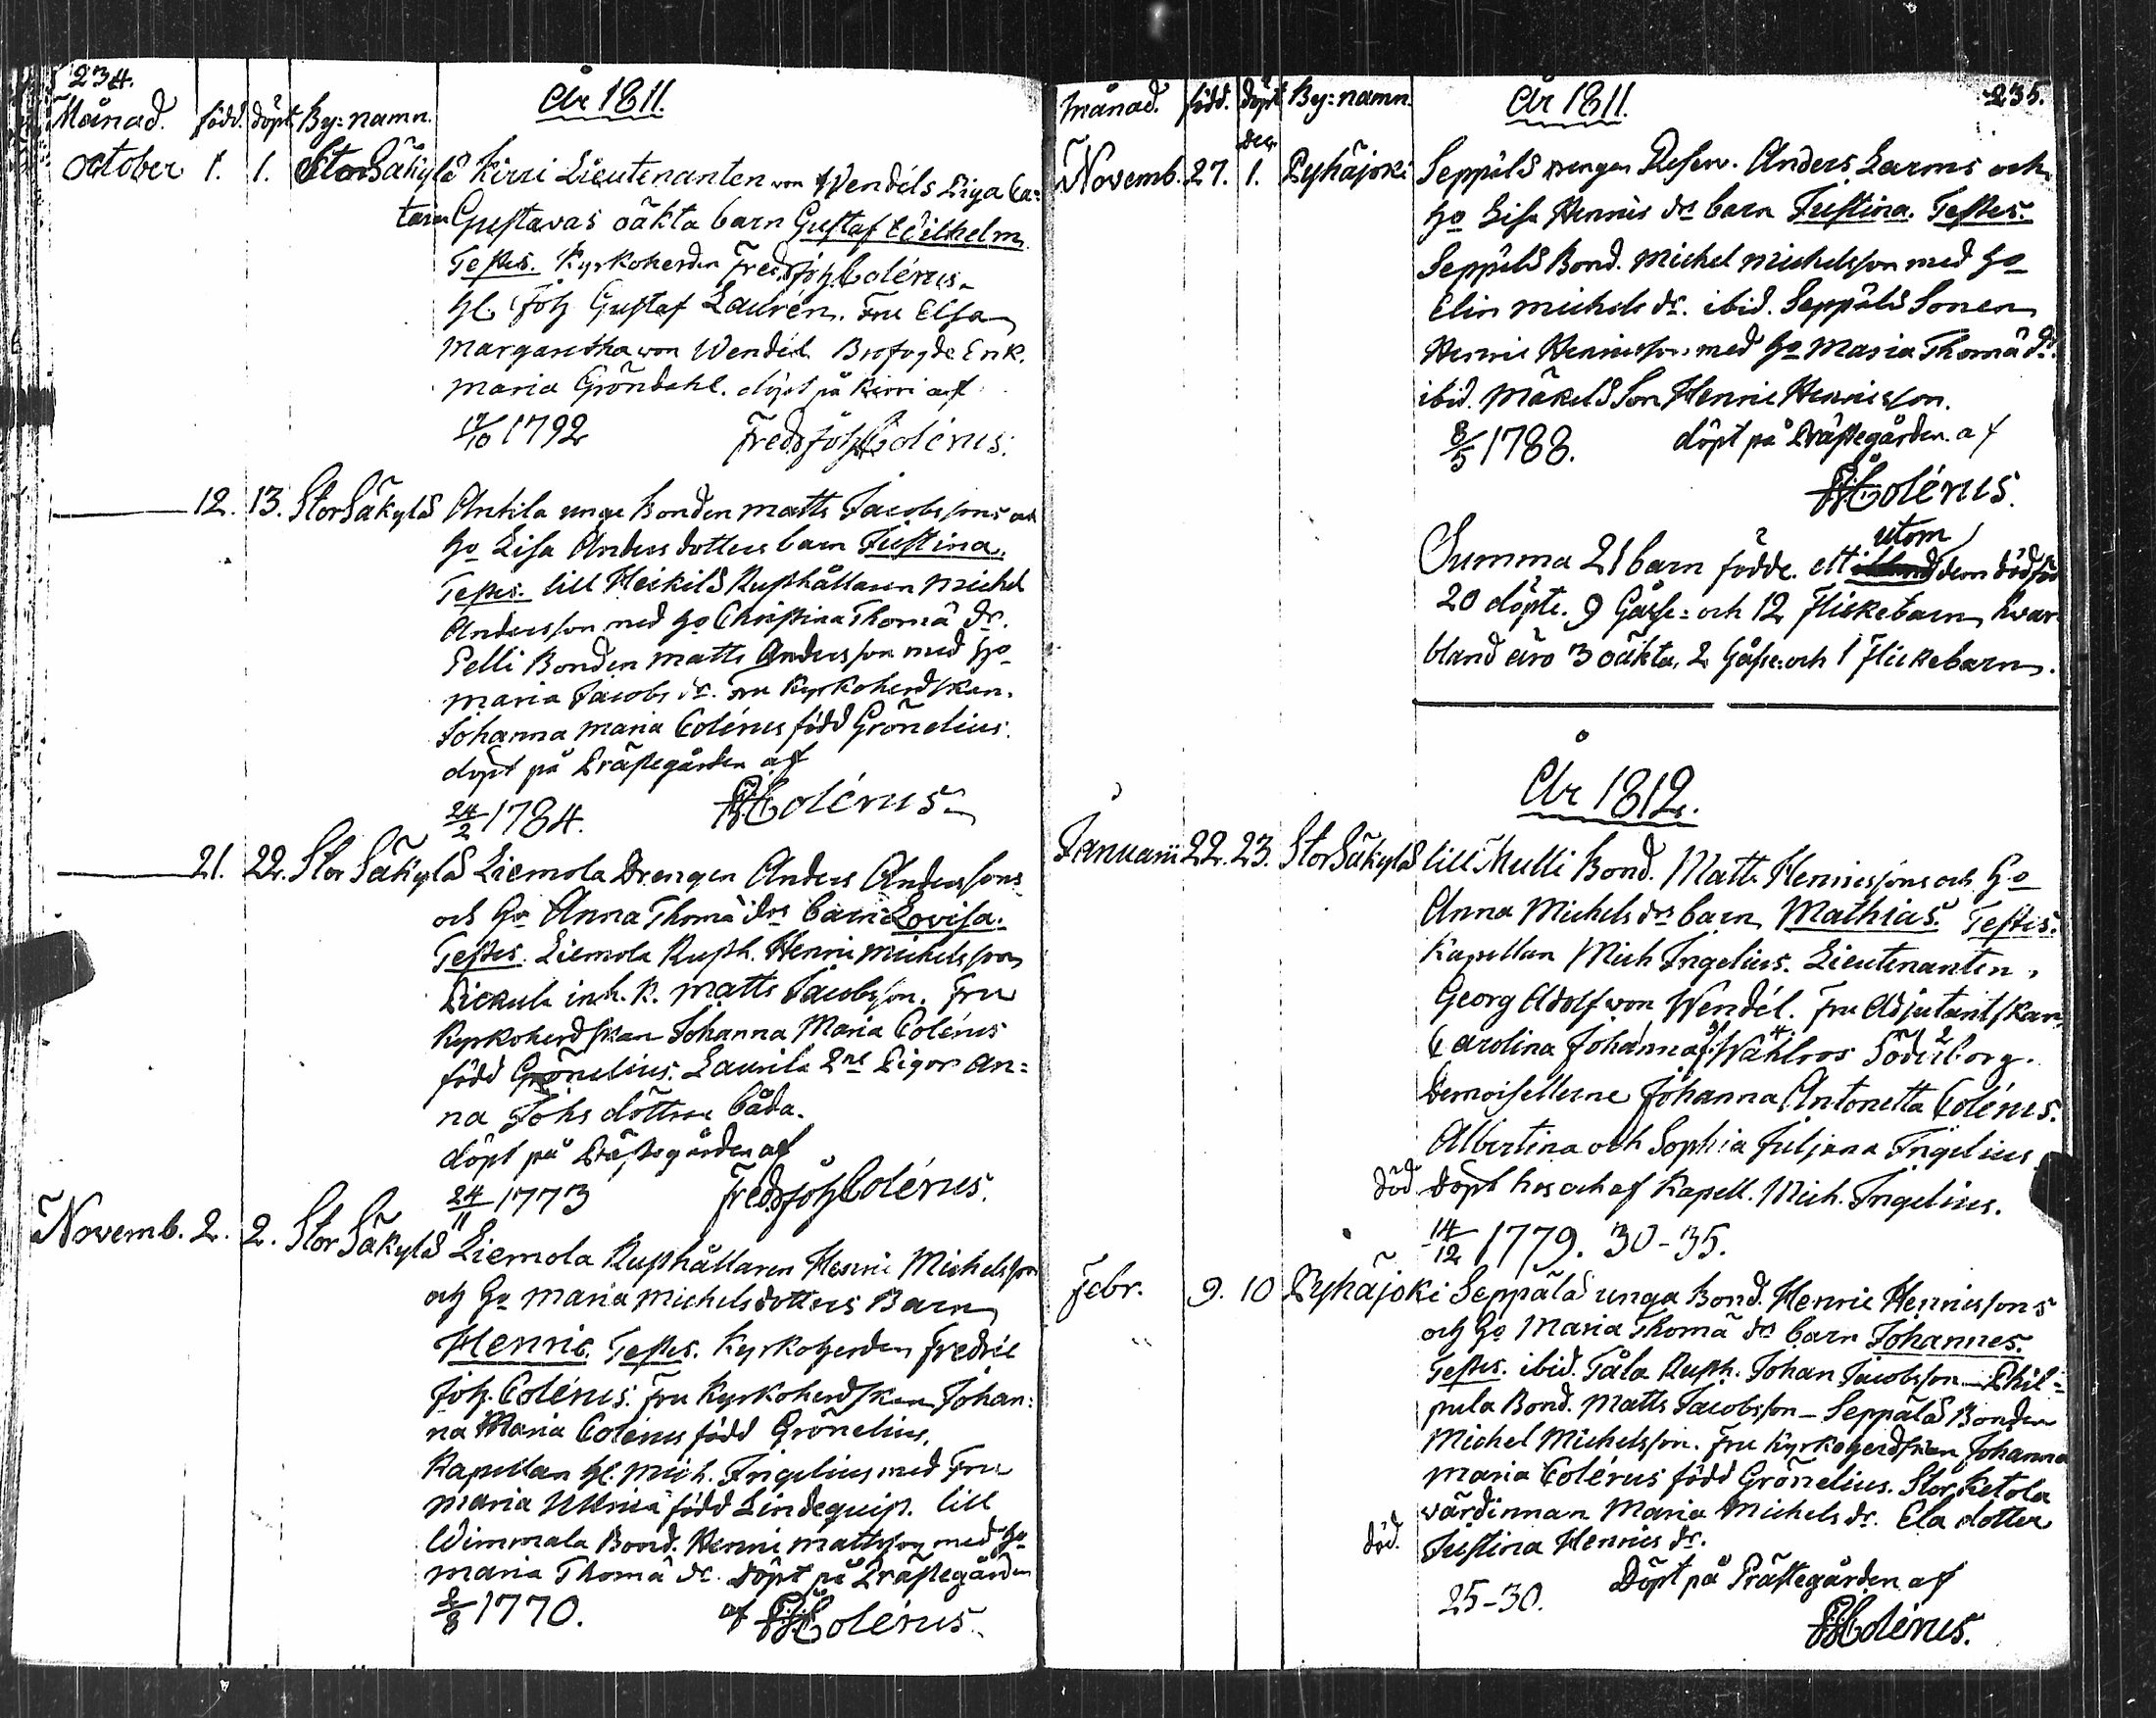 234.
Månad. född. döpt By=namn. År 1811.
October 1. 1. StorSäkylä Kirri Lieutenanten von Wendéls Piga Ca=
tarina Gustavas oäkta barn Gustaf Wilhelm.
Testes. Kyrkoherden Fredr Joh Colérus.
Hl. Joh Gustaf Laurén. Fru Elsa
Margaretha von Wendel Brofogde Enk.
Maria Gröndahl. döpt på Kirri af
17/10 1792 Fredr Joh Colérus.
12. 13. StorSäkylä Anttila unge Bonden Matts Jacobssons och
Ho Lisa Anders dotters barn Justina.
Testes. lill Heikilä Rusthållaren Michel
Andersson med Ho Christina Thomä dr.
Pelli Bonden Matts Andersson med Ho
Maria Jacobs dr. Fru Kyrkoherdskan
Johanna Maria Colérus född Grönelius.
döpt på Prästegården af
24/2 1784. FJColérus
21. 22. Stor Säkylä Liemola Drengen Anders Anderssons
och Ho Anna Thomä drs barn Lovisa.
Testes. Liemola Rusth. Henric Michelsson
inh. K. Matts Jacobsson. Fru
Kyrkoherdskan Johanna Maria Colérus
född Grönelius. Laurila 2ne Pigor An=
na Johs döttrar båda.
döpt på Prästegården af
24/11 1773 Fredr Joh Colérus.
Novemb. 2. 2. Stor Säkylä Liemola Rusthållaren Henric Michelssons
och Ho Maria Michelsdotters Barn
Henric. Testes. Kyrkoherden Fredric
Joh. Colérus. Fru Kyrkoherdskan Johan=
na Maria Colérus född Grönelius.
Kapellan Hl. Mich. Ingelius med Fru
Maria Ulrica född Lindequist. lill
Wimmala Bond. Henric Mattsson med Ho
Maria Thomä dr. döpt på Prästegården
2/8 1770. af FJColérus.
235.
Månad. född. döpt By=namn. År 1811.
Dec.
Novemb. 27. 1. Pyhäjoki Seppälä drengen Reserv. Anders Larms och
Ho Lisa Henrics drs barn Justina. Testes.
Seppälä Bond. Michel Michelsson med Ho
Elin Michels dr. ibid. Seppälä Sonen
Henric Henricsson med Ho Maria Thomä dr.
ibid. Mäkelä Son Henric Henricsson.
8/5 1788. döpt på Prästegården af
FJColérus.
utom
Summa 21 barn födde. ett dem dödfödt
20 döpte. 9 Gåsse= och 12 Flickebarn, hvar
bland äro 3 oäkta, 2 Gåsse= och 1 Flickebarn.
År 1812.
Januarii 22. 23. StorSäkylä lill Mulli Bond. Matts Henricssons och Ho
Anna Michels drs barn Mathias. Testes.
Kapellan Mich Ingelius. Lieutenanten
Georg Adolf von Wendél. Fru Adjutantskan
Carolina Johanna f. Wahlroos Söderborg.
Demoisellerne Johanna Antonetta Colérus.
Albertina och Sophia Juljana Ingelius
död döpt hos och af Kapell. Mich. Ingelius.
14/12 1779. 30-35.
Febr. 9. 10 Pyhäjoki Seppälä unga Bond. Henric Henricssons
och Ho Maria Thomä drs barn Johannes.
Testes. ibid. Tåla Rusth. Johan Jacobsson - Phil=
pula Bond. Matts Jacobsson - Seppälä Bonden
Michel Michelsson. Fru Kyrkoherdskan Johanna
Maria Colérus född Grönelius. Stor Ketola
värdinnan Maria Michels dr. Ela dotter
död. Justina Henrics dr.
25-30. Döpt på Prästegården af
FJColérus.